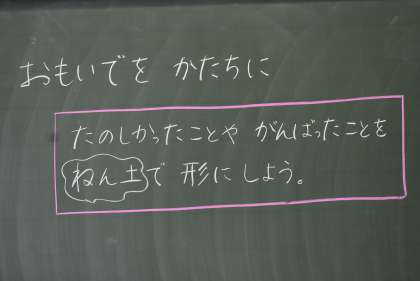 おもいでを かたちに
たのしかったことや がんばったことを
ねん土で 形に しよう。